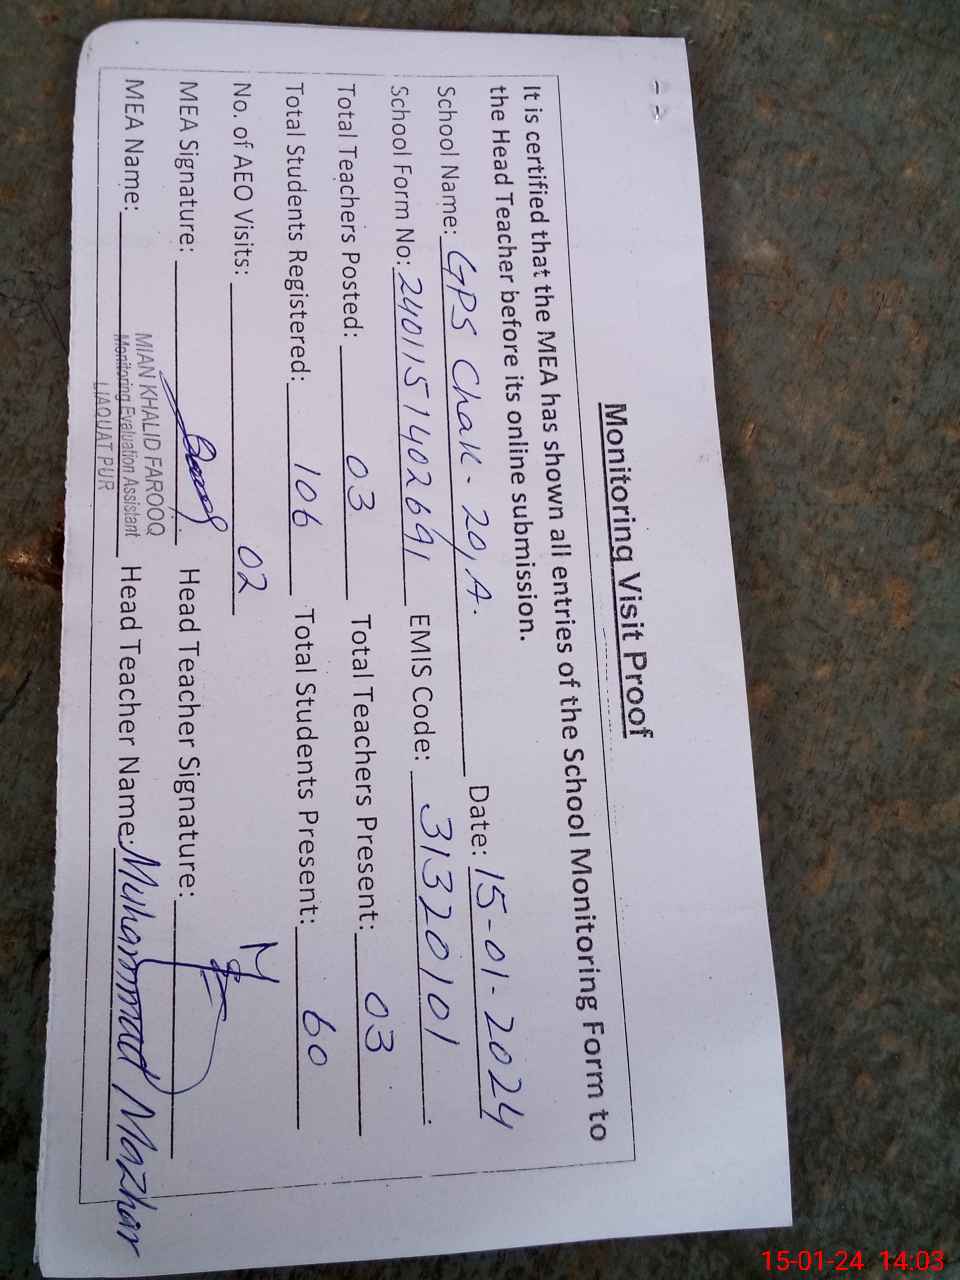 Monitoring Visit Proof
It is certified that the MEA has shown all entries of the School Monitoring Form to
the Head Teacher before its online submission.
School Name: GPS Chak - 20, A. Date: 15-01-2024
School Form No: 2401151402691 EMIS Code: 31320101
Total Teachers Posted: 03 Total Teachers Present: 03
Total Students Registered: 106 Total Students Present: 60
No. of AEO Visits: 02
MEA Signature: Head Teacher Signature:
MEA Name: MIAN KHALID FAROOQ Head Teacher Name: Muhammad Mazhar
Monitoring Evaluation Assistant
LIAQUAT PUR
15-01-24 14:03